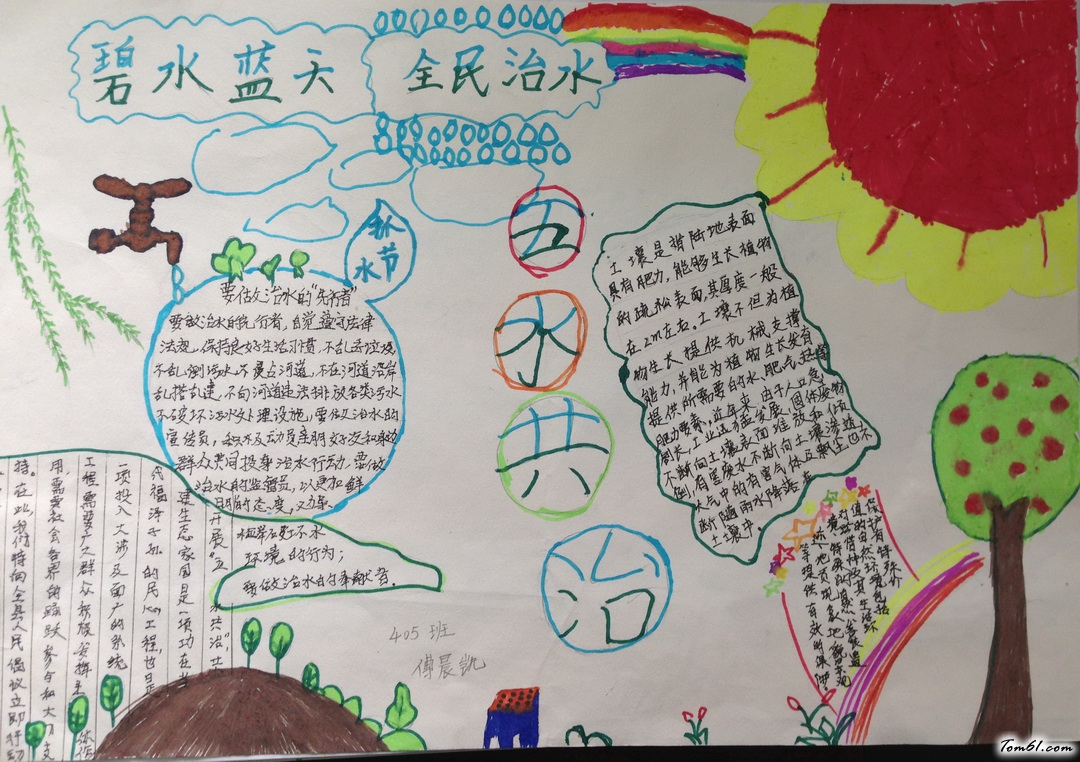 碧水蓝天 全民治水
环
水节
五
水
共
治
要做治水的“先行者”
要做治水的先行者，自觉遵守法律
法规，保持良好生活习惯，不乱丢垃圾
不乱倒污水，不侵占河道，不在河道沿岸
乱搭乱建，不向河道违法排放各类污水
不破坏污水处理设施，要做治水的
宣传员，积极动员亲朋好友和身边
群众共同投身治水行动，要做
治水的监督员，以更加鲜
明的态度，
环境的行为；
要做治水的奉献者。
土壤是指陆地表面
具有肥力，能够生长植物
的疏松表面，其厚度一般
在2m左右。土壤不但为植
物生长提供机械支撑
能力，并能为植物生长发育
提供所需要的水、肥、气、热等
肥力要素，近年来，由于人口急
剧增长，工业迅猛发展，固体废物
不断向土壤表面堆放和倾
倒，有害废水不断向土壤渗透
大气中的有害气体及飘尘也不
断随雨水降落在
土壤中。
保护有特殊价
值的自然环境包括
开质“五水共治”
建生态家园是一项功在当
代福泽子孙的民心工程，也是
一项投入大涉及面广的系统
工程，需要广大群众积极发挥主体作
用，需要社会各界的踊跃参与和大力支
持。在此，我们特向全县人民倡议立即行动
405班
傅晨凯
Tom61.com